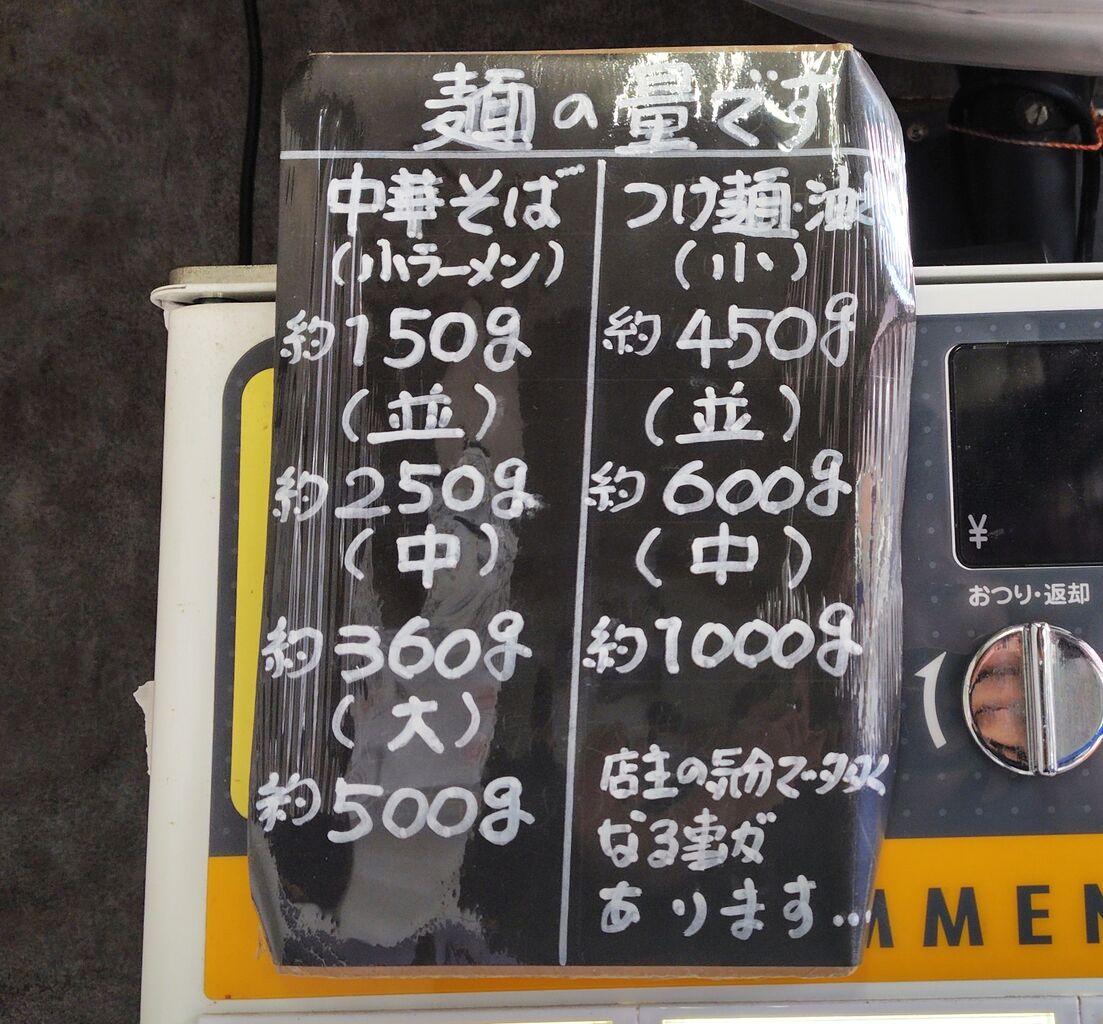 麺の量です
中華そば
(小ラーメン)
約150g
(並)
約250g
(中)
約360g
(大)
約500g
つけ麺・油
(小)
約450g
(並)
約600g
(中)
約1000g
店主の気分で多く
なる事が
あります…
¥
おつり・返却
MMEN